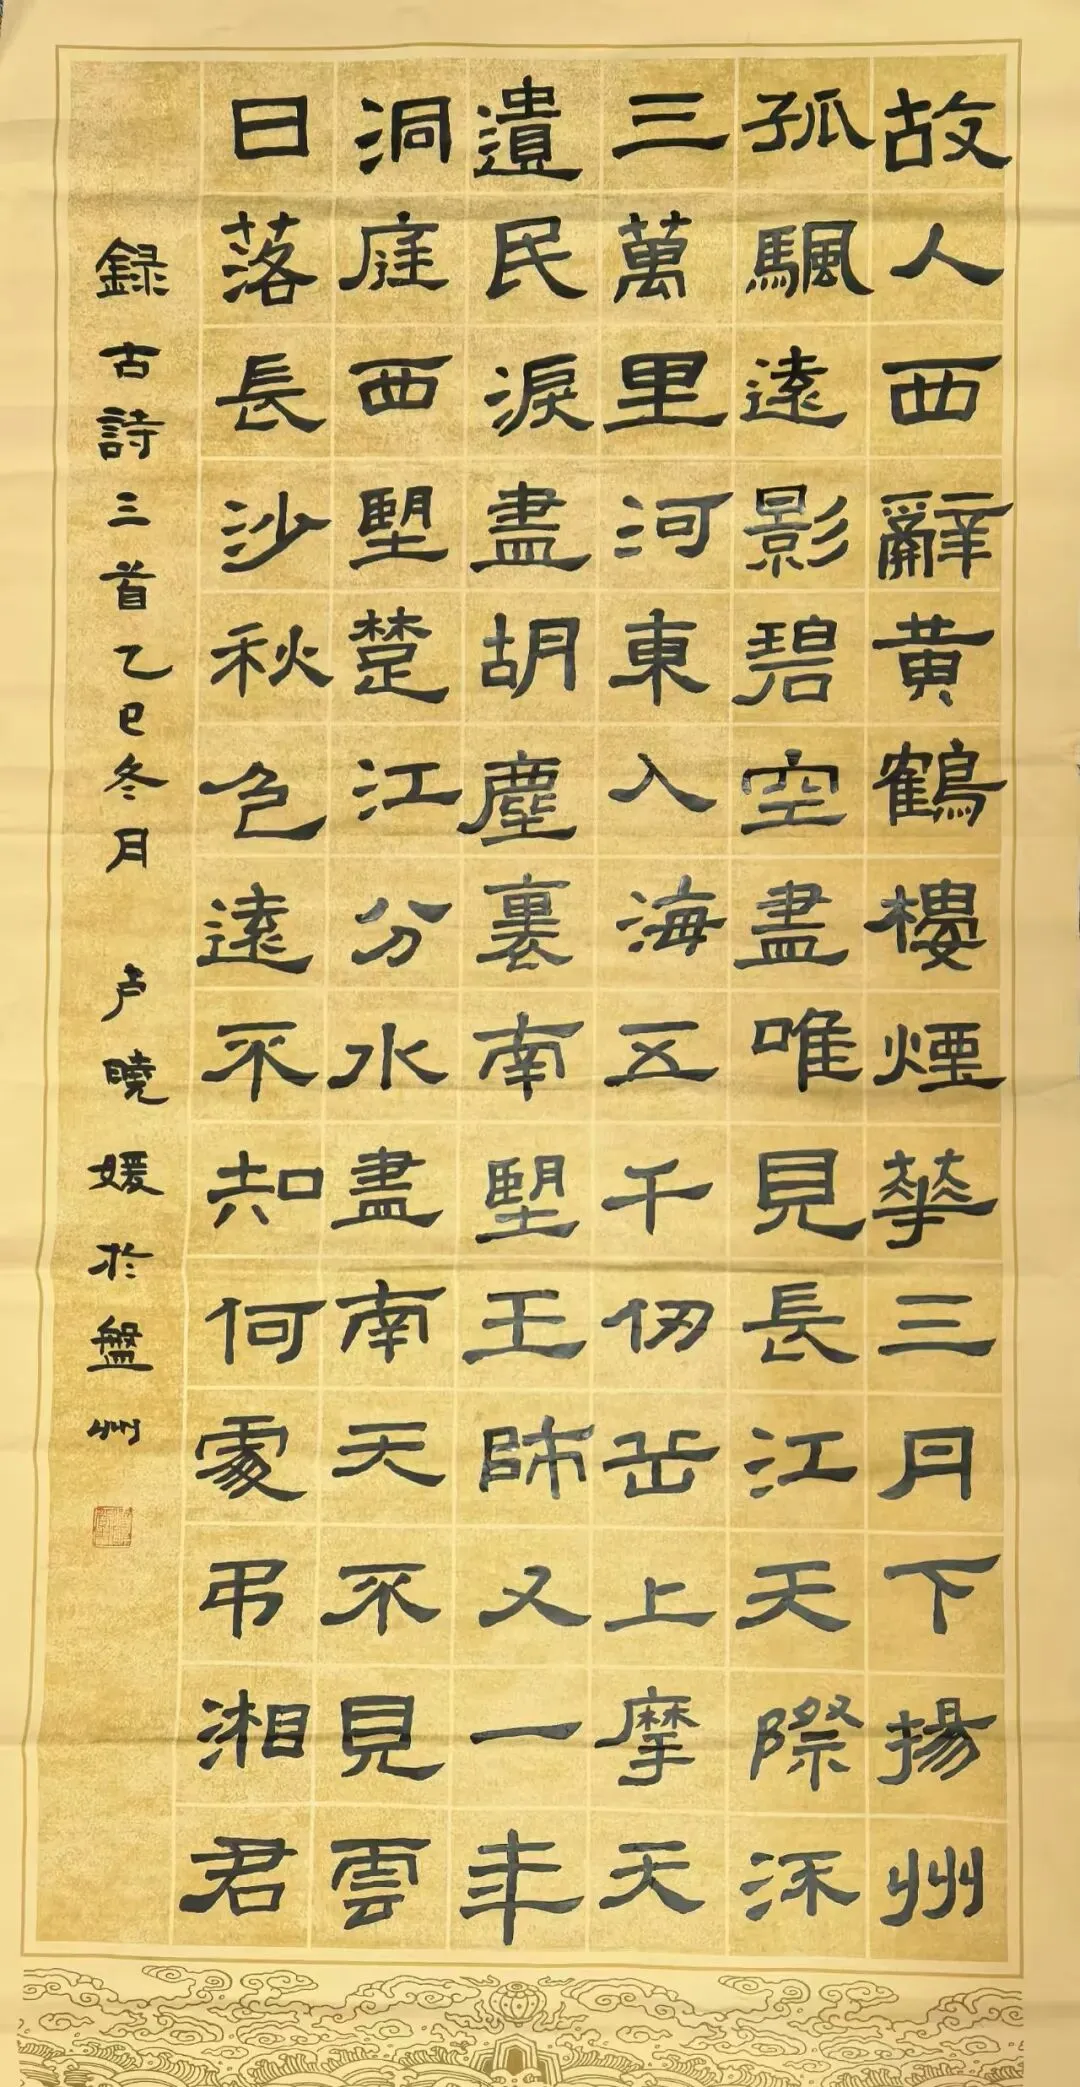 故人西辭黄鶴樓煙華三月下揚州
孤颿遠影碧空盡唯見長江天際流
三萬里河東入海五千仞岳上摩天
遺民淚盡胡塵裏南朢王師又一年
洞庭西朢楚江分水盡南天不見雲
日落長沙秋色遠不知何處弔湘君
錄古詩三首乙巳冬月 卢曉媛於盤州